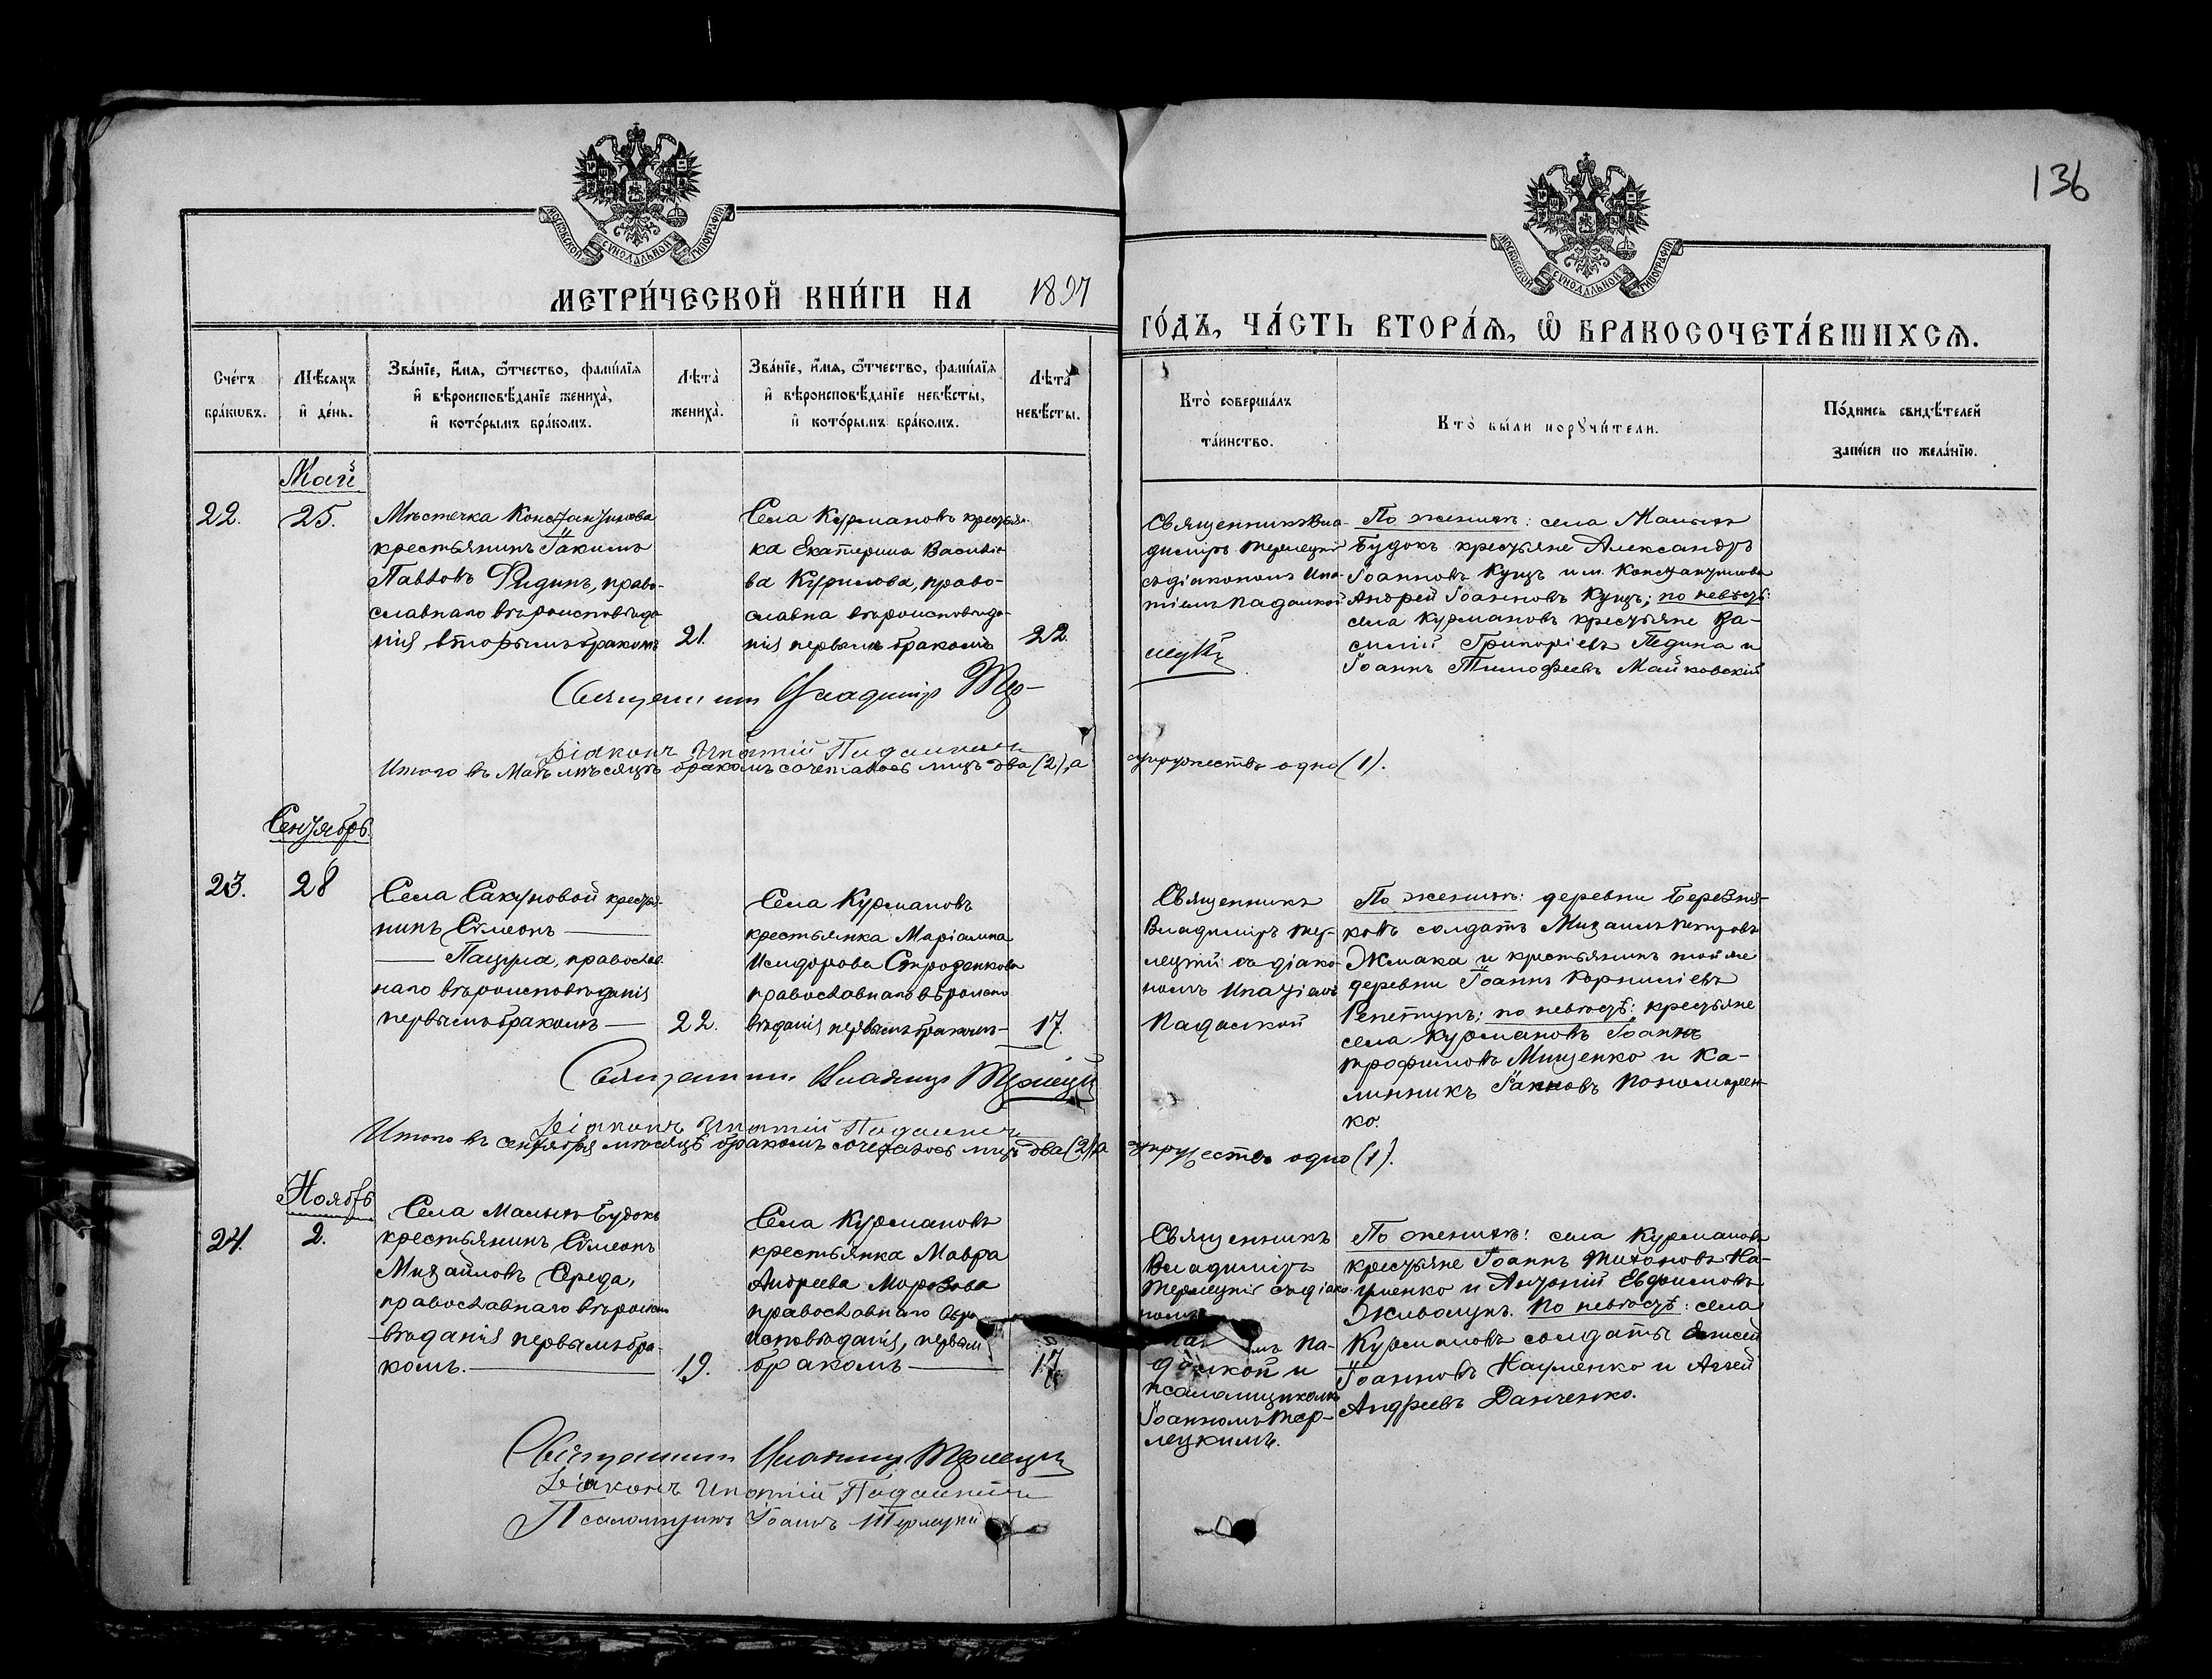 136
МОСКОВСКОЙ СѴНОДАЛЬНОЙ ТИПОГРАФІИ
МОСКОВСКОЙ СѴНОДАЛЬНОЙ ТИПОГРАФІИ
МЕТРИ́ЧЕСКОЙ КНИ́ГИ НА 1897
ГО́ДЪ, ЧА́СТЬ ВТОРА́Ѧ, Ѡ БРАКОСОЧЕТА́ВШИХСѦ.
Сче́тъ
бра́кωвъ.
Мѣ́сѧцъ
и҆ де́нь.
Зва́нїе, и҆́мѧ, ѻ҆́тчество, фамѝлїѧ
и҆ вѣроисповѣ́данїе жениха̀,
и҆ кото́рымъ бра́комъ.
Лѣта̀
жениха̀.
Зва́нїе, и҆́мѧ, ѻ҆́тчество, фамѝлїѧ
и҆ вѣроисповѣ́данїе невѣ́сты,
и҆ кото́рымъ бра́комъ.
Лѣта̀
невѣ́сты.
Кто̀ соверша́лъ
та́инство.
Кто̀ бы́ли порꙋчи́тели.
По́дпись свидѣ́телей
за́писи по жела́нїю.
Май
22.
25.
Мѣстечка Константинова
крестьянинъ Іакимъ
Павловъ Ридинъ, право-
славнаго вѣроисповѣда
нія, вторымъ бракомъ
21.
Села Курмановъ крестьян-
ка Екатерина Василіе
ва Курилова, право-
славна вѣроисповѣда-
нія первымъ бракомъ
22.
Священникъ Вла-
диміръ Терлецкій
съ діакономъ Ипа-
тіемъ Падалкой
По женихѣ: села Малыхъ
Будокъ крестьяне Александръ
Іоанновъ Куцъ и м. Константинова
Андрей Іоанновъ Куцъ; по невѣстѣ:
села Курмановъ крестьяне Ва-
силій Григоріевъ Педина и
Іоаннъ Тимофеевъ Майковскій
Священникъ Владиміръ Тер-
Діаконъ Ипатій Падалка
Итого въ Маѣ мѣсяцѣ бракомъ сочеталось лицъ два (2), а
супружество одно (1).
Сентябрь.
23.
28
Села Сакуновой крестья
нинъ Сѵмеонъ
Пацула, православ
наго вѣроисповѣданія
первымъ бракомъ
22.
Села Курмановъ
крестьянка Маріамна
Исидорова Строденкова
православнаго вѣроиспо
вѣданія первымъ бракомъ-
17.
Священникъ
Владиміръ Тер-
лецкій съ діако-
номъ Ипатіемъ
Падалкой
По женихѣ: деревни Березня-
ковъ солдатъ Михаилъ Петровъ
Жмака и крестьянинъ той же
деревни Іоаннъ Корниліевъ
Репетунъ; по невѣстѣ: крестьяне
села Курмановъ Іоаннъ
Трофимовъ Мищенко и Ка-
линникъ Іаковъ Пономарен-
ко.
Священникъ Владиміръ Терлецкій
Діаконъ Ипатій Падалка
Итого въ сентябрѣ мѣсяцѣ бракомъ сочеталось лицъ два (2), а
супружество одно (1).
Ноябрь
24.
2.
Села Малыхъ Будокъ
крестьянинъ Сѵмеонъ
Михайловъ Середа,
православнаго вѣроиспо
вѣданія первымъ бра-
комъ.
19.
Села Курмановъ
крестьянка Мавра
Андреева Морозова
православнаго вѣро
исповѣданія, первым
бракомъ
17
Священникъ
Владиміръ
Терлецкій съ діако-
номъ
Па-
далкой и
псаломщикомъ
Іоанномъ Тер-
лецкимъ.
По женихѣ: села Курмановъ
крестьяне Іоаннъ Тихоновъ На-
уменко и Антоній Евфимовъ
Живолупъ. По невѣстѣ: села
Курмановъ солдаты
Іоанновъ Науменко и Аггей
Андреевъ Данченко.
Священникъ Владиміръ Терлецкій
Діаконъ Ипатій Падалка
Псаломщикъ Іоаннъ Терлецкій